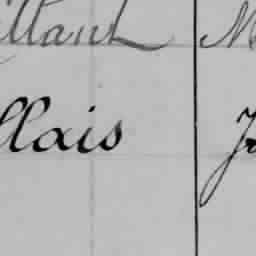 illant M
llais J